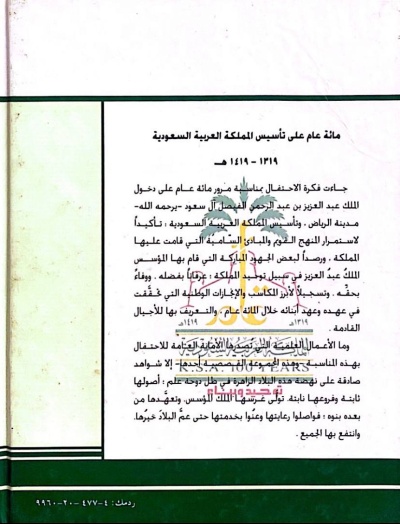 مائة عام على تأسيس المملكة العربية السعودية
١٣١٩ - ١٤١٩ هـ
جاءت فكرة الاحتفال بمناسبة مرور مائة عام على دخول
الملك عبد العزيز بن عبد الرحمن الفيصل آل سعود -يرحمه الله-
مدينة الرياض ، وتأسيس المملكة العربية السعودية ؛ تأكيداً
لاستمرار المنهج القويم والمبادئ السّامية التي قامت عليها
المملكة ، ورصداً لبعض الجهود المباركة التي قام بها المؤسس
الملك عبد العزيز في سبيل توحيد المملكة ؛ عرفاناً بفضله ، ووفاءً
بحقّه ، وتسجيلاً لأبرز المكاسب والإنجازات الوطنية التي تحقّقت
في عهده وعهد أبنائه خلال المائة عام ، والتعريف بها للأجيال
القادمة .
١٤١٩هـ ١٣١٩هـ
وما الأعمال العلمية التي تصدرها الأمانة العامة للاحتفال
بهذه المناسبة - وهذه المجموعة القصصية أحدها - إلا شواهد
K.S.A. 100 YEARS
صادقة على نهضة هذه البلاد الزاهرة في ظل دوحة علم ؛ أصولها
توحيد وبناء
ثابتة وفروعها نابتة، تولى غرسها الملك المؤسس، وتعهّدها من
بعده بنوه ؛ فواصلوا رعايتها وعنُوا بخدمتها حتى عمّ البلادَ خيرُها،
وانتفع بها الجميع .
ردمك: ٤-٤٧٧-٢٠-٩٩٦٠